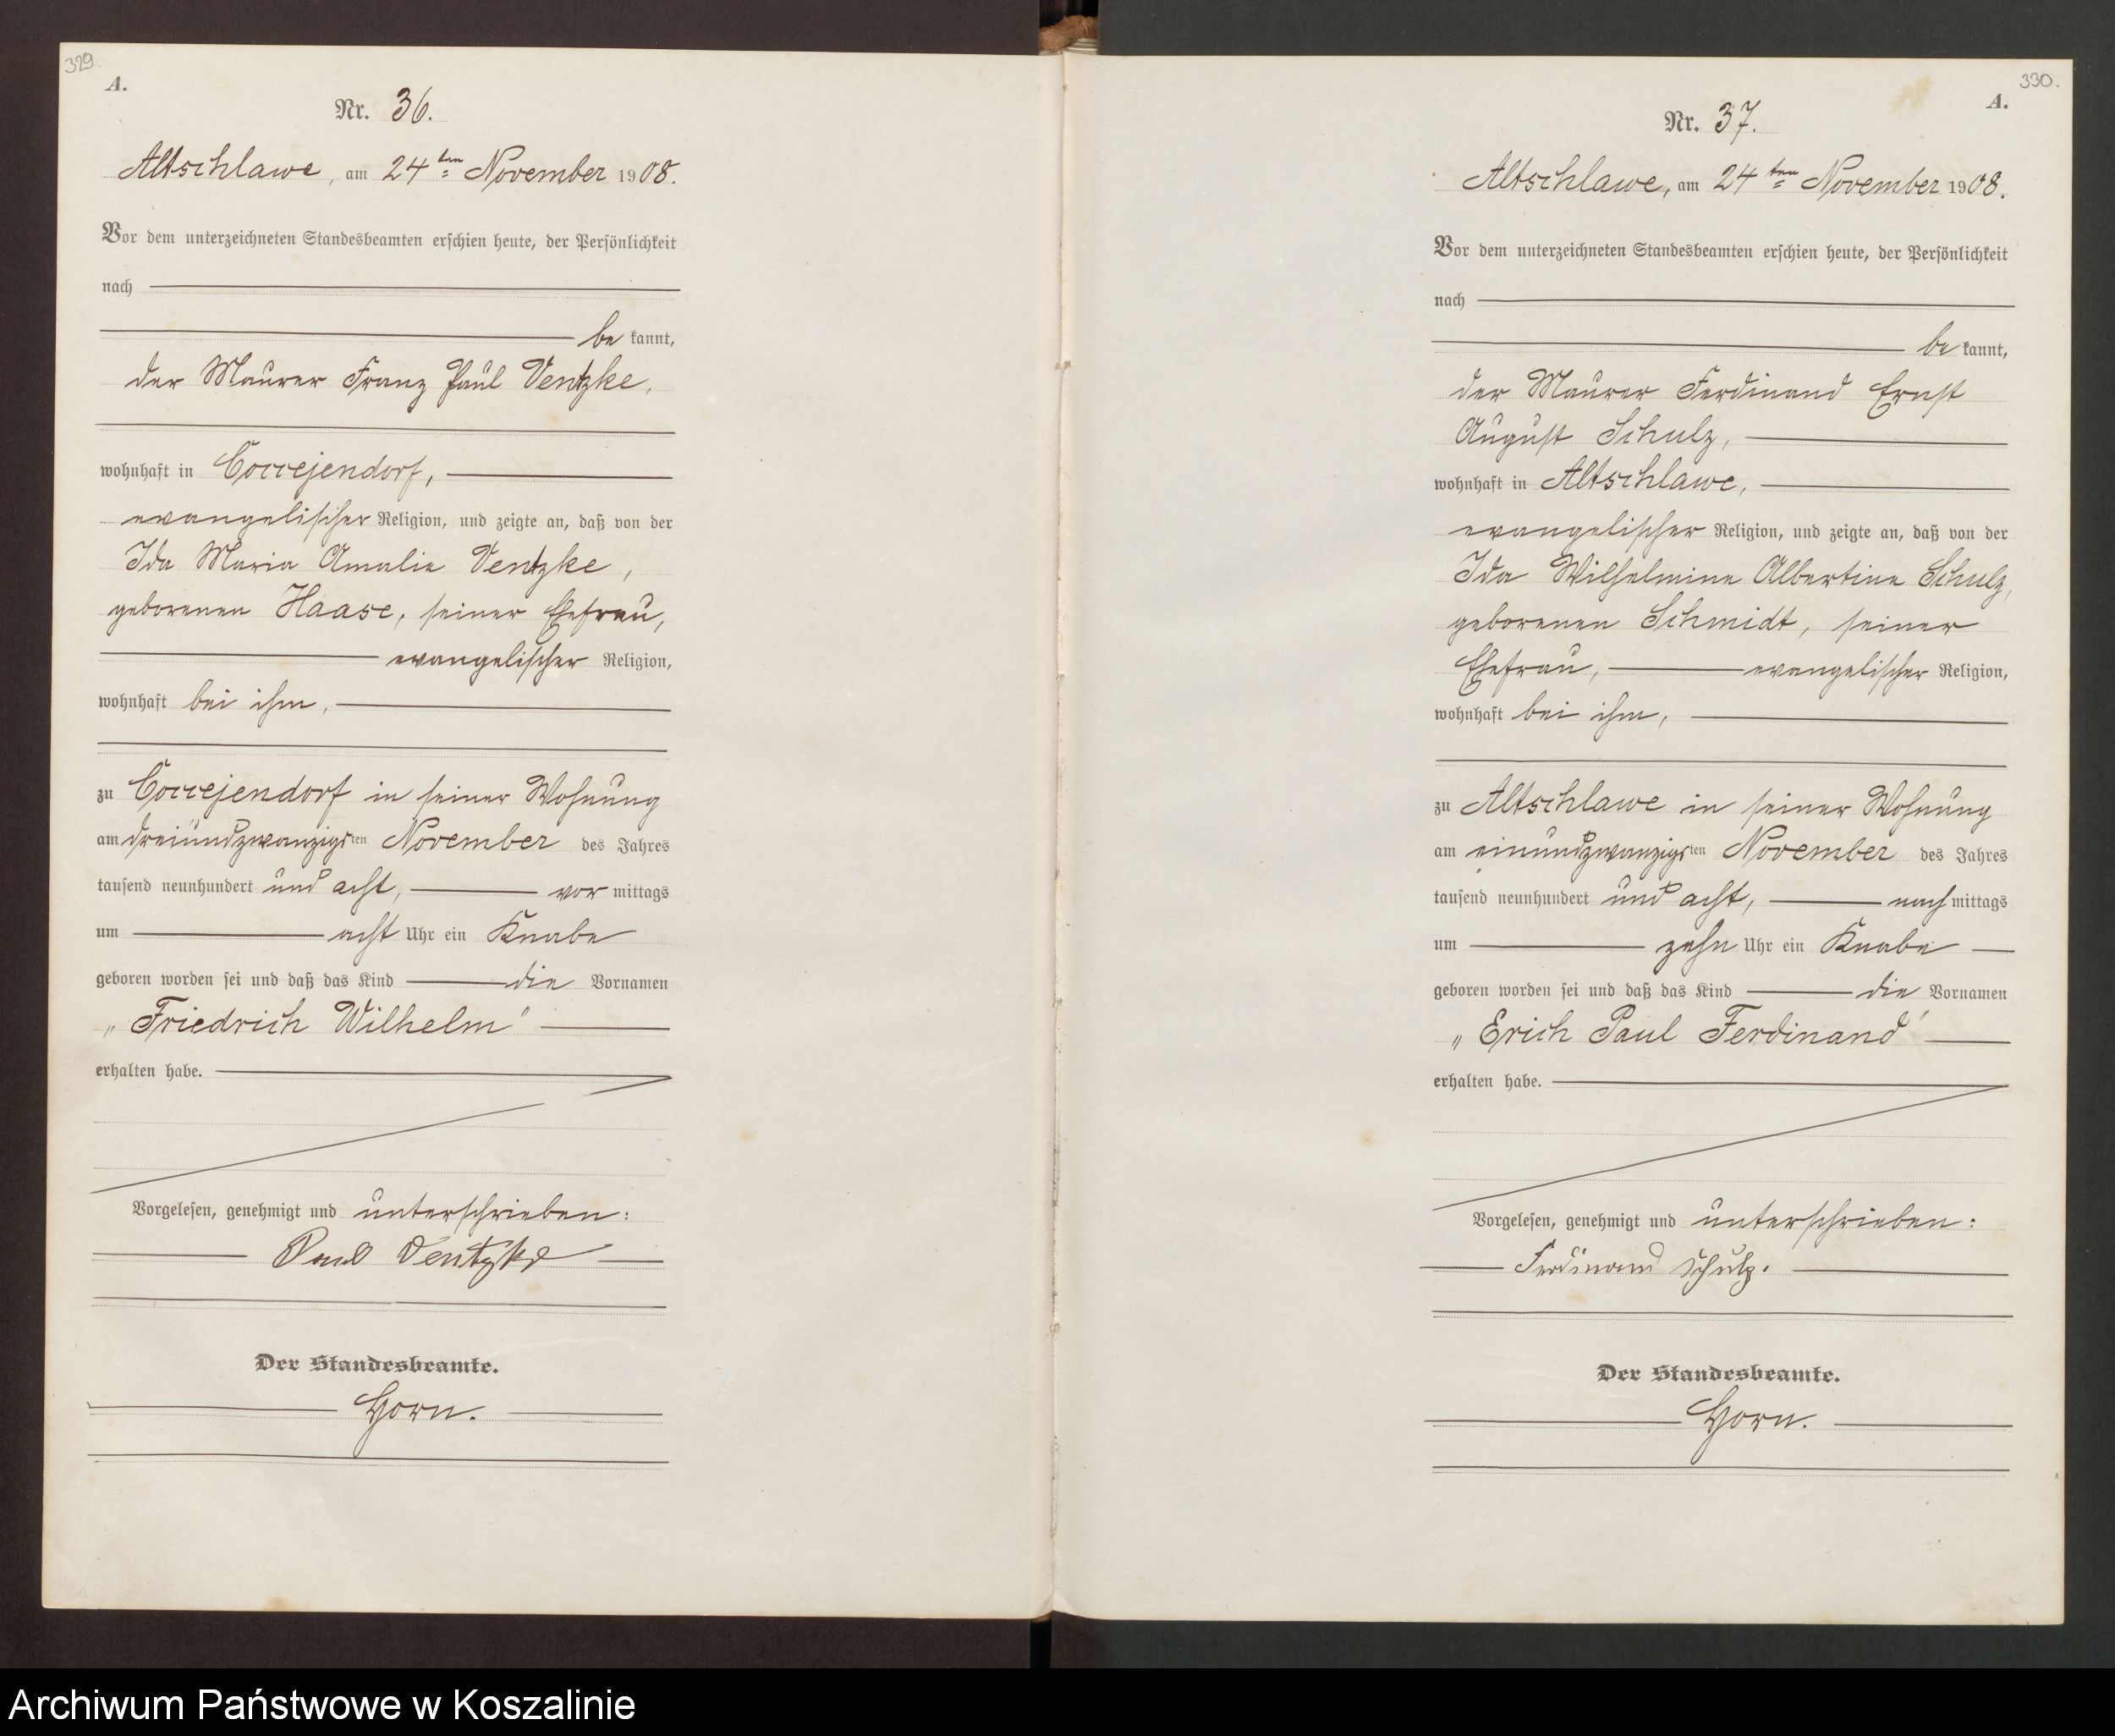 329.
A.
Nr. 36.
Altschlawe, am 24ten November 1908.
Vor dem unterzeichneten Standesbeamten erschien heute, der Persönlichkeit
nach
be kannt,
der Maurer Franz Paul Ventzke,
wohnhaft in Coccejendorf,
evangelischer Religion, und zeigte an, daß von der
Ida Maria Amalie Ventzke,
geborenen Haase, seiner Ehefrau,
evangelischer Religion,
wohnhaft bei ihm,
zu Coccejendorf in seiner Wohnung
am dreiundzwanzigsten November des Jahres
tausend neunhundert und acht, vor mittags
um acht Uhr ein Knabe
geboren worden sei und daß das Kind die Vornamen
„Friedrich Wilhelm"
erhalten habe.
Vorgelesen, genehmigt und unterschrieben:
Paul Ventzke
Der Standesbeamte.
Horn.
330.
A.
Nr. 37.
Altschlawe, am 24ten November 1908.
Vor dem unterzeichneten Standesbeamten erschien heute, der Persönlichkeit
nach
be kannt,
der Maurer Ferdinand Ernst
August Schulz,
wohnhaft in Altschlawe,
evangelischer Religion, und zeigte an, daß von der
Ida Wilhelmine Albertine Schulz,
geborenen Schmidt, seiner
Ehefrau, evangelischer Religion,
wohnhaft bei ihm,
zu Altschlawe in seiner Wohnung
am einundzwanzigsten November des Jahres
tausend neunhundert und acht, nach mittags
um zehn Uhr ein Knabe
geboren worden sei und daß das Kind die Vornamen
„Erich Paul Ferdinand"
erhalten habe.
Vorgelesen, genehmigt und unterschrieben:
Ferdinand Schulz.
Der Standesbeamte.
Horn.
Archiwum Państwowe w Koszalinie